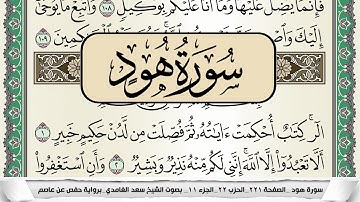 فَإِنَّمَا يَضِلُّ عَلَيْهَا وَمَا أَنَا عَلَيْكُم بِوَكِيلٍ ١٠٨ وَاتَّبِعْ مَا يُوحَىٰ
إِلَيْكَ وَاصْ
١٠٩
سُورَةُ هُودٍ
الٓر ۚ كِتَابٌ أُحْكِمَتْ ءَايَاتُهُ ثُمَّ فُصِّلَتْ مِن لَّدُنْ حَكِيمٍ خَبِيرٍ ١
أَلَّا تَعْبُدُوٓا۟ إِلَّا ٱللَّهَ ۚ إِنَّنِى لَكُم مِّنْهُ نَذِيرٌ وَبَشِيرٌ ٢ وَأَنِ ٱسْتَغْفِرُوا۟
سورة هود _ الصفحة ٢٢١ _ الحزب ٢٢ _ الجزء ١١ _ بصوت الشيخ سعد الغامدي _ برواية حفص عن عاصم